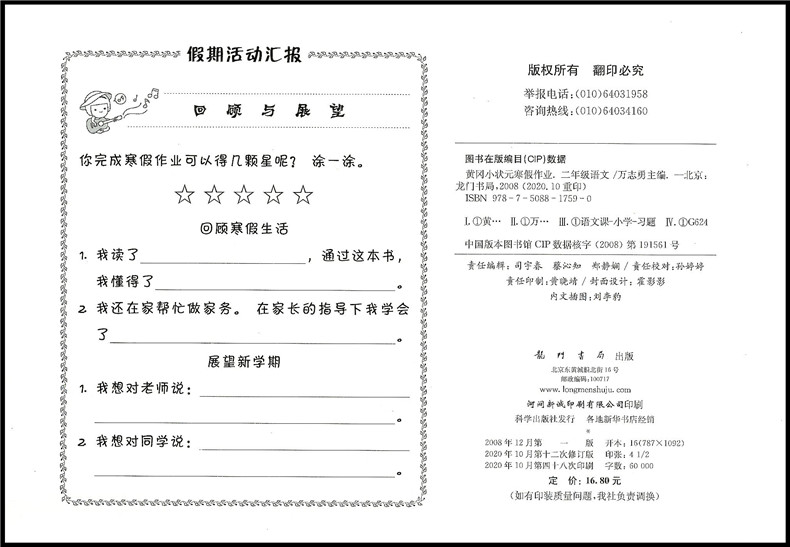 假期活动汇报
回顾与展望
你完成寒假作业可以得几颗星呢？ 涂一涂。
回顾寒假生活
1. 我读了，通过这本书，
我懂得了。
2 我还在家帮忙做家务。 在家长的指导下我学会
了。
展望新学期
1. 我想对老师说：
。
2 我想对同学说：
。
版权所有 翻印必究
举报电话：(010)64031958
咨询热线：(010)64034160
图书在版编目(CIP)数据
黄冈小状元寒假作业. 二年级语文/万志勇主编. —北京：
龙门书局，2008 (2020.10重印)
ISBN 978-7-5088-1759-0
Ⅰ.①黄… Ⅱ.①万… Ⅲ.①语文课-小学-习题 Ⅳ.①G624
中国版本图书馆CIP数据核字 (2008) 第 191561 号
责任编辑：司宇春 蔡沁知 郑静娴/责任校对：孙婷婷
责任印制：黄晓靖/封面设计：霍影影
内文插图：刘李豹
龙门书局 出版
北京东黄城根北街16号
邮政编码：100717
www.longmenshuju.com
河间新诚印刷有限公司印刷
科学出版社发行 各地新华书店经销
*
2008年12月第 一 版 开本：16(787×1092)
2020年10月第十二次修订版 印张：4 1/2
2020年10月第四十八次印刷 字数：60 000
定 价：16.80元
(如有印装质量问题，我社负责调换)